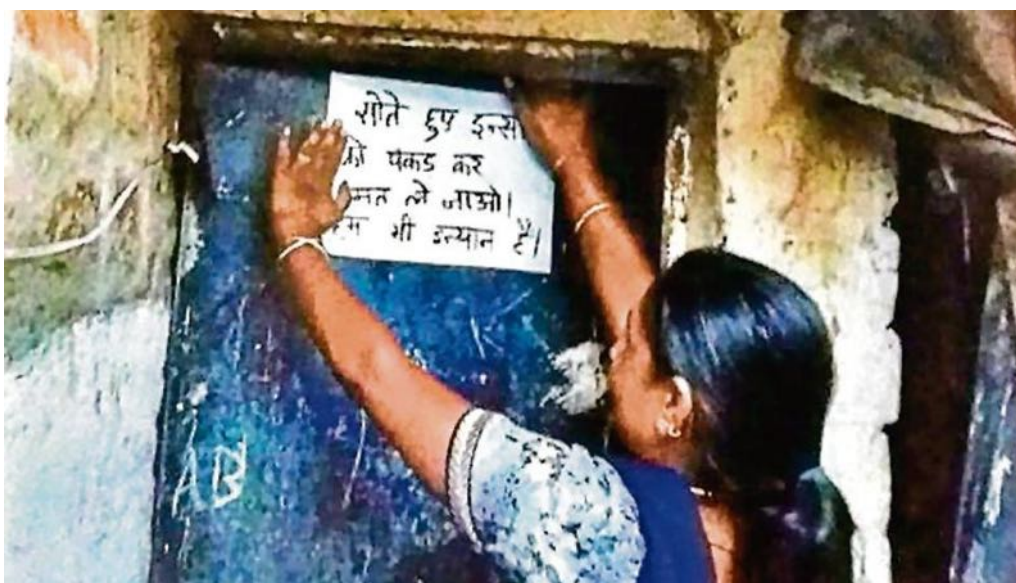 सोते हुए इन्सा
को पकड कर
मत ले जाओ।
हम भी इन्सान है।
AB